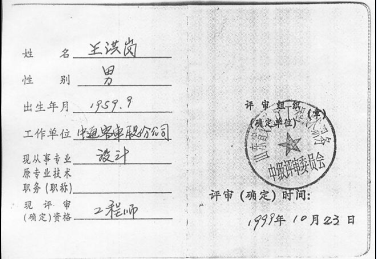 姓 名 王洪岗
性 别 男
出生年月 1959.9
工作单位 中通客车股份公司
现从事专业 设计
原专业技术
职务(职称)
现评审
(确定)资格 工程师
评审组织
(确定单位) (章)
中级评审委员会
评审(确定)时间:
1999年10月23日